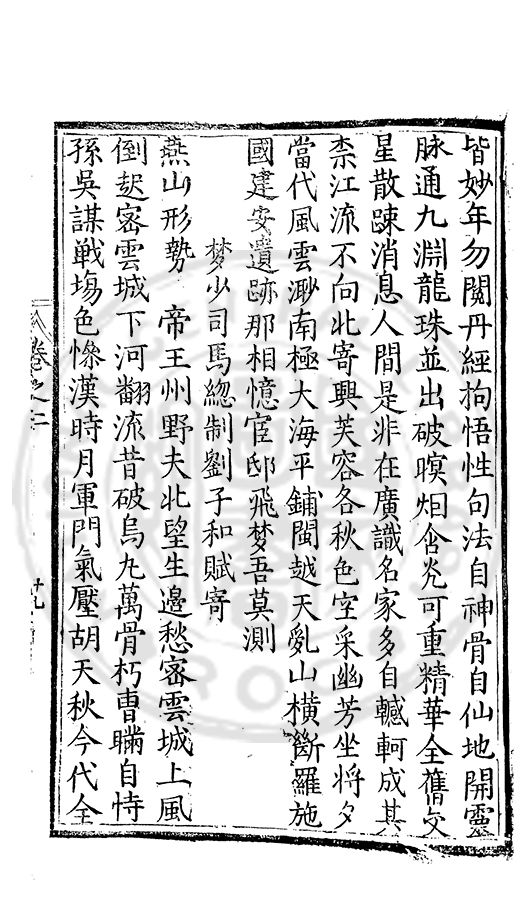 皆妙年勿闋丹經拘悟性句法自神骨自仙地開靈
脉通九淵龍珠並出破暝烟含光可重精華全舊交
星散踈消息人間是非在廣識名家多自轗軻成其
柰江流不向北寄興芙容各秋色空采幽芳坐將夕
當代風雲渺南極大海平鋪閩越天亂山橫斷羅施
國建安遺跡那相憶宦邸飛梦吾莫測
梦少司馬緫制劉子和賦寄
燕山形勢帝王州野夫北望生邊愁密雲城上風
倒起密雲城下河翻流昔破烏九萬骨朽曹瞞自恃
孫吳謀戰塲色慘漢時月軍門氣壓胡天秋今代全
卷之二
十九